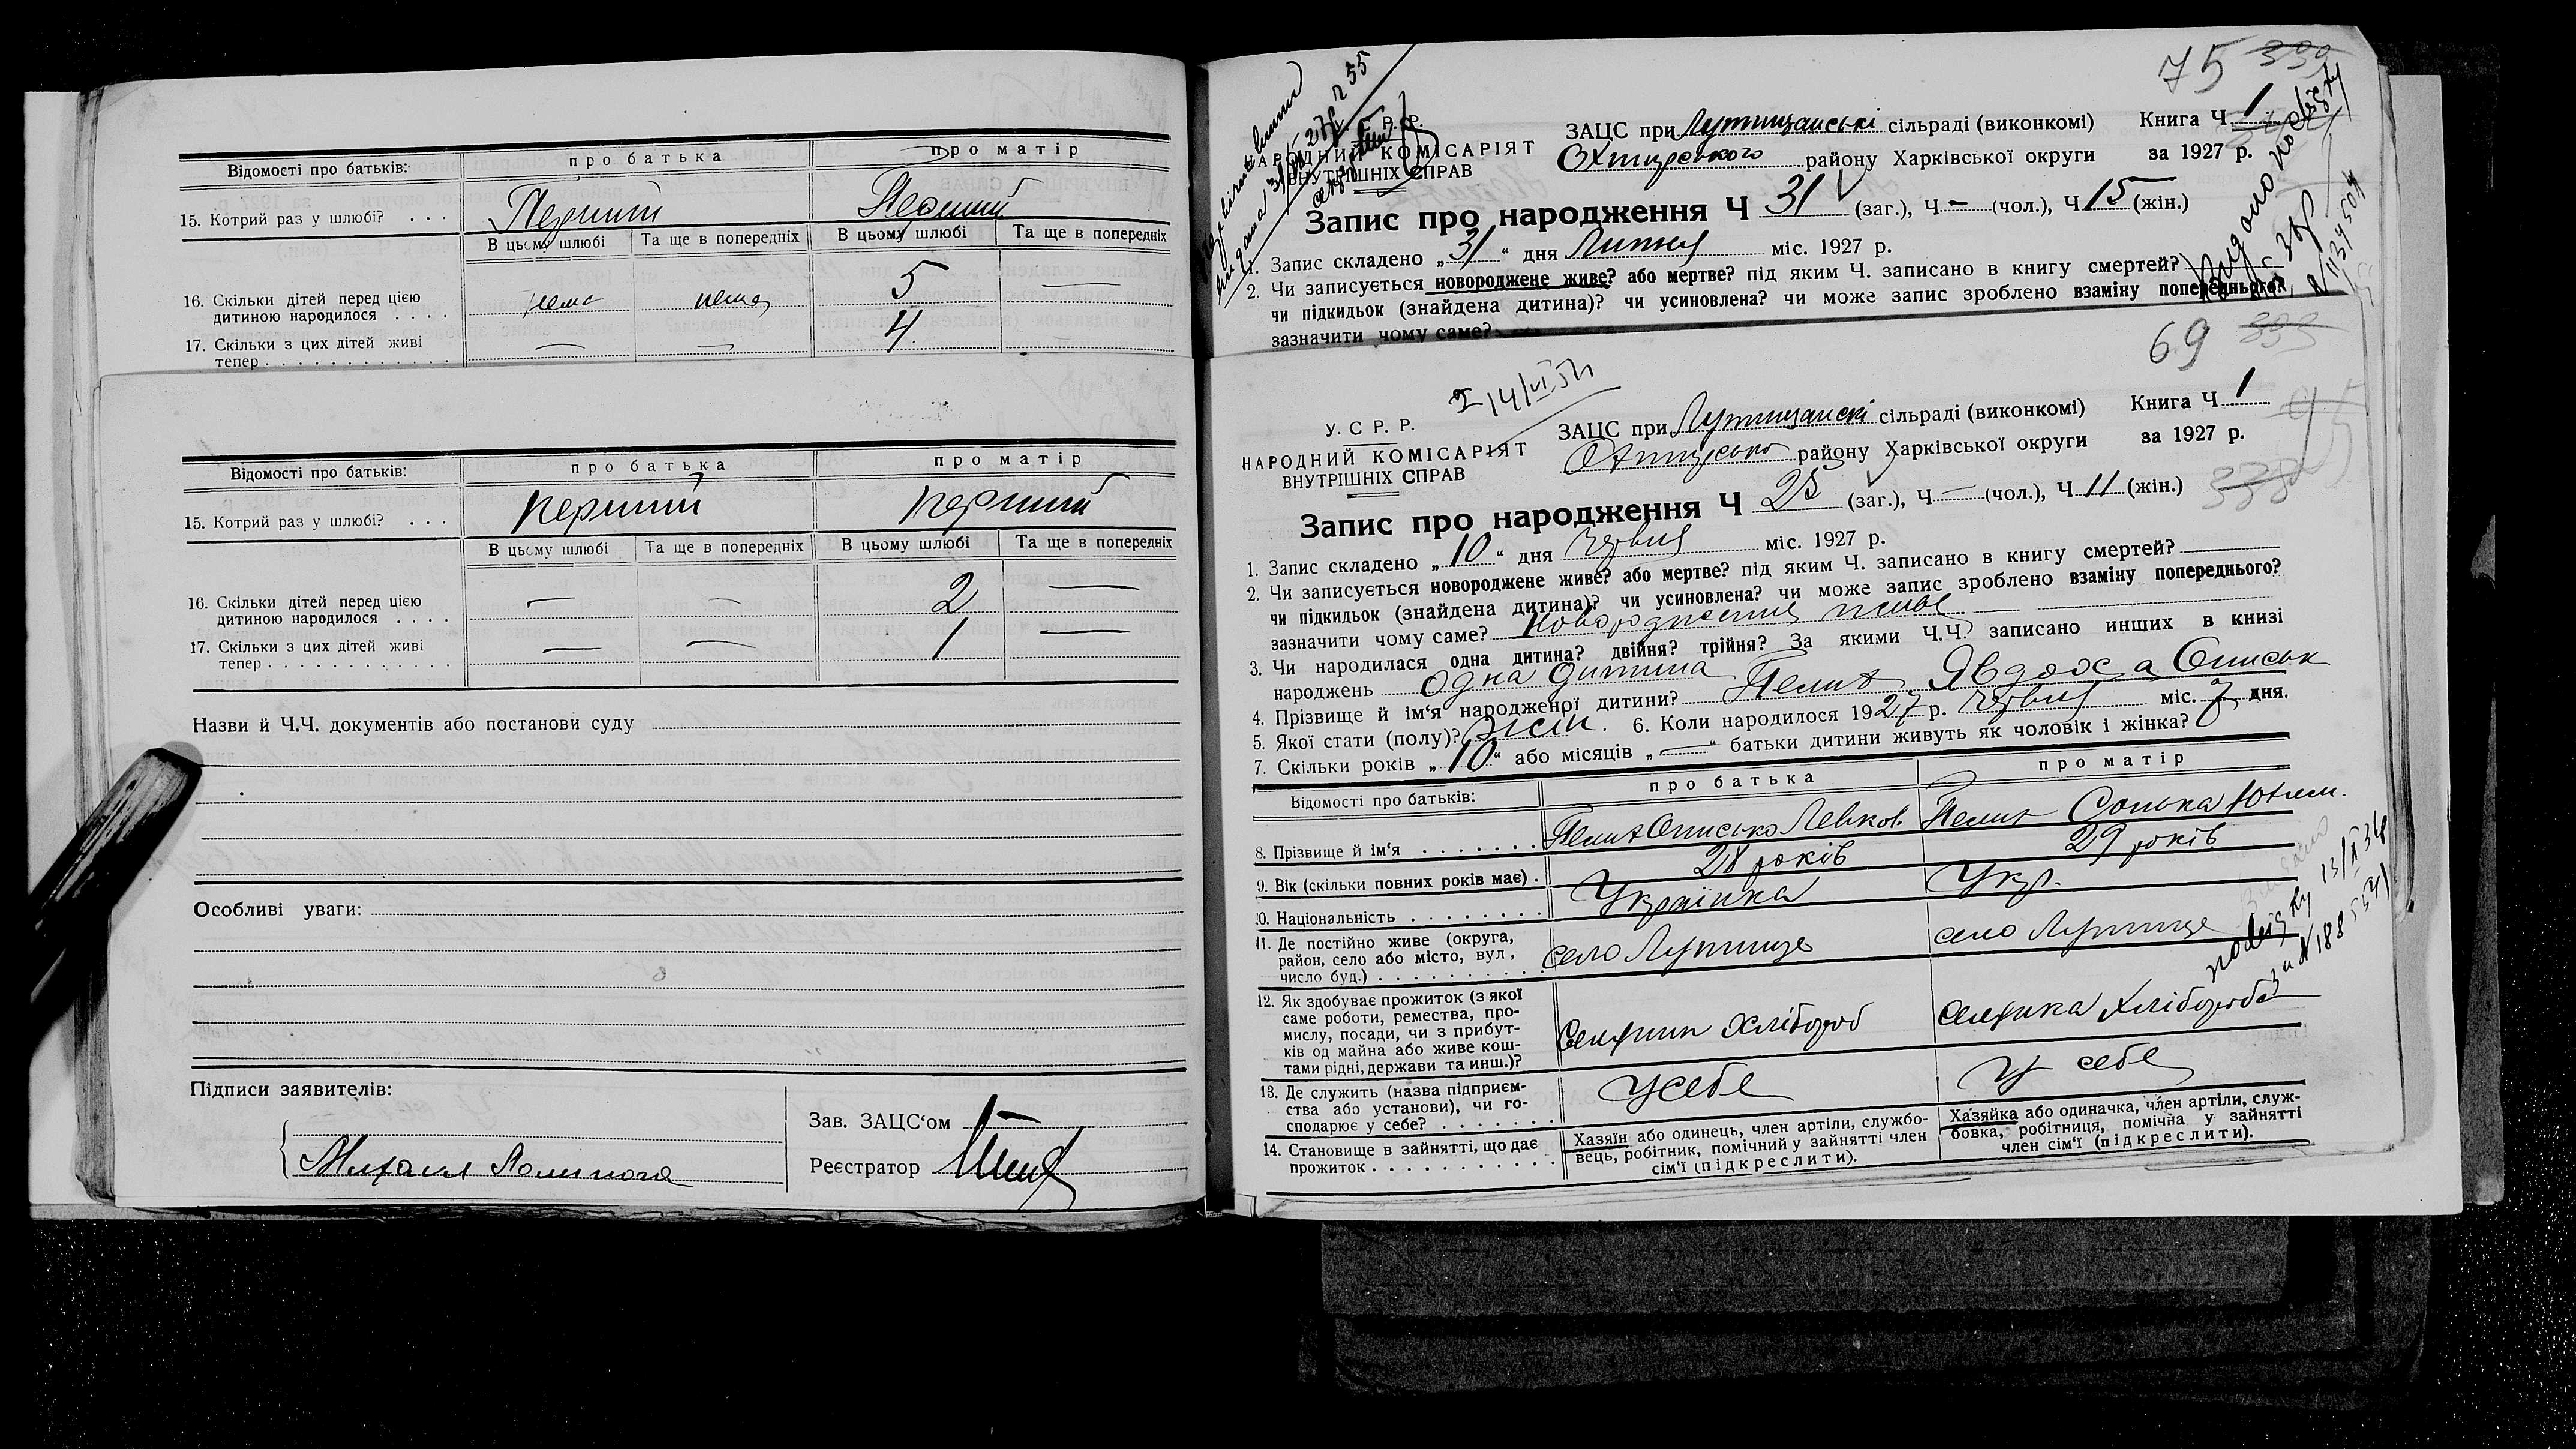 Відомості про батьків: про батька про матір
15. Котрий раз у шлюбі? . . . Перший Перший
В цьому шлюбі Та ще в попередніх В цьому шлюбі Та ще в попередніх
16. Скільки дітей перед цією
дитиною народилося . . . . нема нема 5 —
17. Скільки з цих дітей живі
тепер . . . . . . . . . . . . — — 4
Відомості про батьків: про батька про матір
15. Котрий раз у шлюбі? . . . перший перший
В цьому шлюбі Та ще в попередніх В цьому шлюбі Та ще в попередніх
16. Скільки дітей перед цією
дитиною народилося . . . . — — 2 —
17. Скільки з цих дітей живі
тепер . . . . . . . . . . . . — — 1 —
Назви й Ч.Ч. документів або постанови суду
Особливі уваги:
Підписи заявителів:
Зав. ЗАЦС‘ом
Реєстратор
75
Р. Р.
НАРОДНИЙ КОМІСАРІЯТ
ВНУТРІШНІХ СПРАВ
ЗАЦС при Лутищанські сільраді (виконкомі) Книга Ч 1
району Харківської округи за 1927 р.
Запис про народження Ч 31 (заг.), Ч — (чол.), Ч 15 (жін.)
1. Запис складено „31“ дня Липня міс. 1927 р.
2. Чи записується новороджене живе? або мертве? під яким Ч. записано в книгу смертей?
чи підкидьок (знайдена дитина)? чи усиновлена? чи може запис зроблено взаміну попереднього?
зазначити чому саме?
69
У. С Р. Р.
НАРОДНИЙ КОМІСАРІЯТ
ВНУТРІШНІХ СПРАВ
ЗАЦС при Лутищанскі сільраді (виконкомі) Книга Ч 1
району Харківської округи за 1927 р.
338
Запис про народження Ч 25 (заг.), Ч — (чол.), Ч 11 (жін.)
1. Запис складено „10“ дня червня міс. 1927 р.
2. Чи записується новороджене живе? або мертве? під яким Ч. записано в книгу смертей?
чи підкидьок (знайдена дитина)? чи усиновлена? чи може запис зроблено взаміну попереднього?
зазначити чому саме? живе
3. Чи народилася одна дитина? двійня? трійня? За якими Ч.Ч. записано инших в книзі
народжень одна дитина
4. Прізвище й ім‘я народженої дитини? Явдоха
5. Якої стати (полу)? жін. 6. Коли народилося 1927 р. червня міс. 7 дня.
7. Скільки років „10“ або місяців „—“ батьки дитини живуть як чоловік і жінка?
Відомості про батьків: про батька про матір
8. Прізвище й ім‘я . . . . . . . Левков.
9. Вік (скільки повних років має) . 28 років 29 років
10. Національність . . . . . . . . Українка Укр.
11. Де постійно живе (округа,
район, село або місто, вул.,
число буд.) . . . . . . . . . . село Лутище село Лутище
12. Як здобуває прожиток (з якої
саме роботи, ремества, про-
мислу, посади, чи з прибут-
ків од майна або живе кош-
тами рідні, держави та инш.)? Селянин хлібороб Селянка хлібороб
13. Де служить (назва підприєм-
ства або установи), чи го-
сподарює у себе? . . . . . . . у себе у себе
14. Становище в зайнятті, що дає
прожиток . . . . . . . . . . .
Хазяїн або одинець, член артіли, службо-
вець, робітник, помічний у зайнятті член
сім‘ї (підкреслити).
Хазяйка або одиначка, член артіли, служ-
бовка, робітниця, помічна у зайнятті
член сім‘ї (підкреслити).